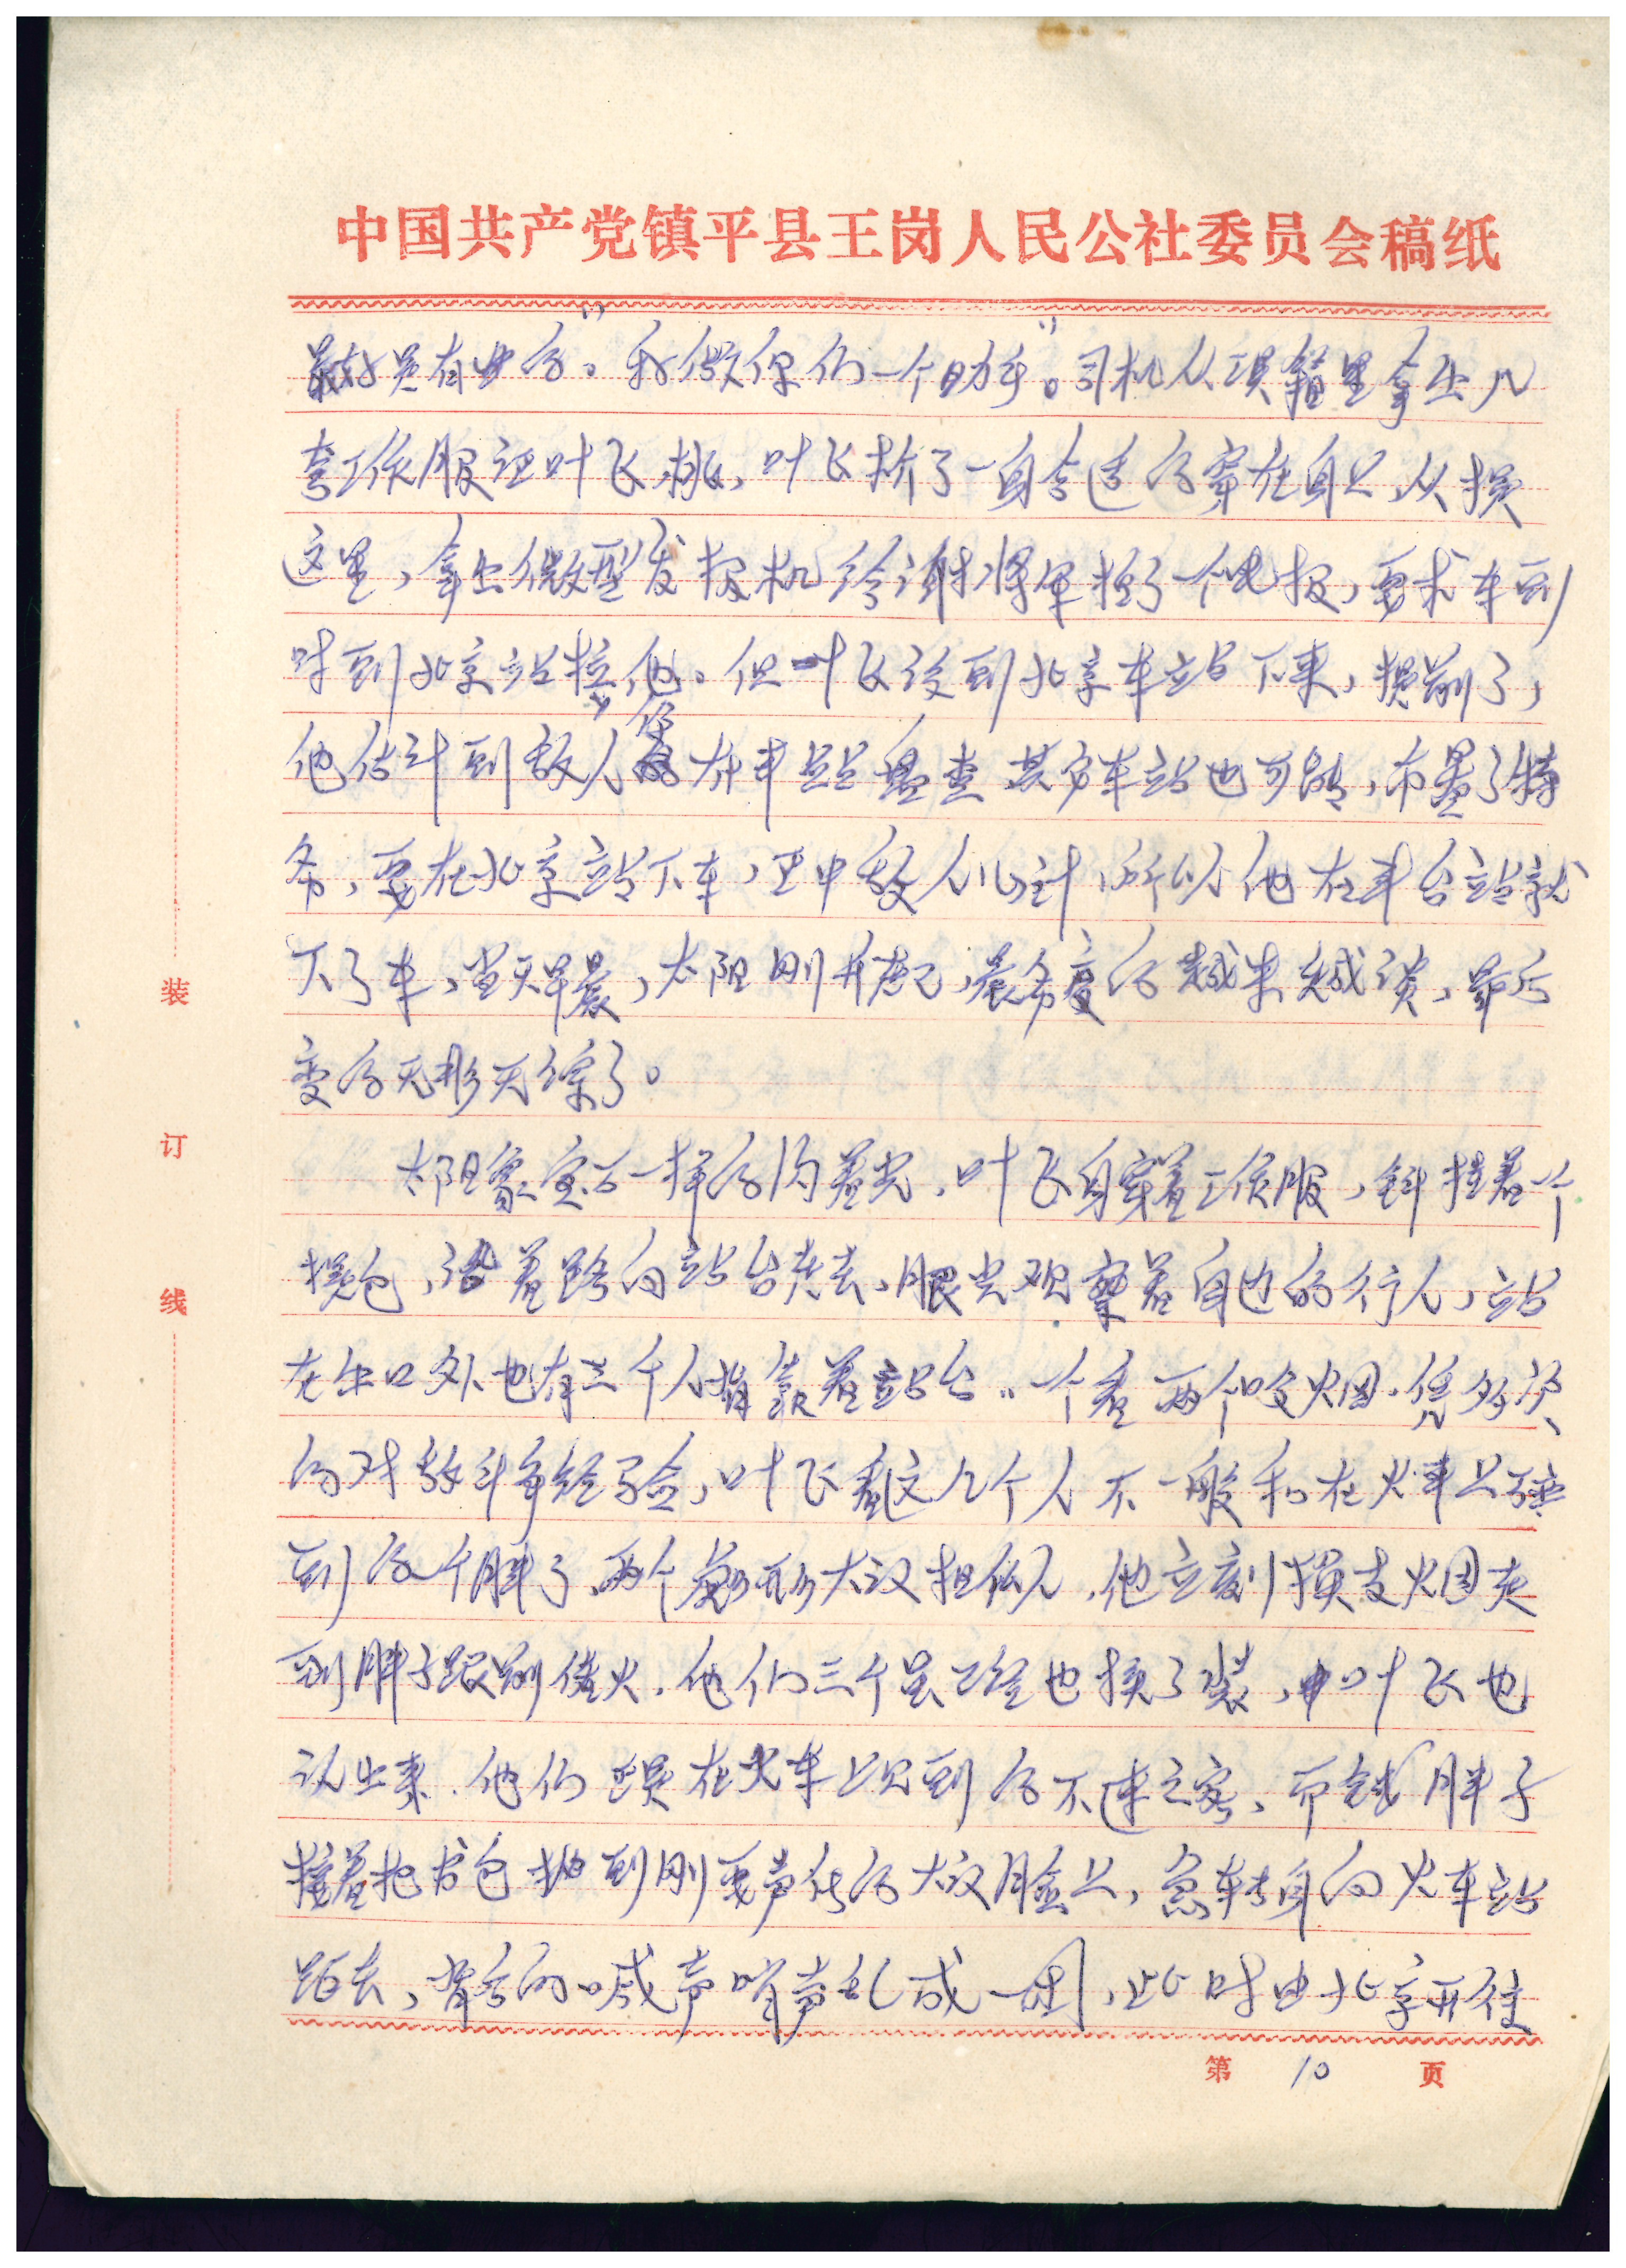 中国共产党镇平县王岗人民公社委员会稿纸
最好是有些的。”我做你们一个助手。”司机从工具箱里拿出几
套工作服让叶飞挑，叶飞挑了一身合适的穿在身上，从提
这里，拿出微型发报机给谢将军拍了一个电报，要求车到
时到北京站接他。但叶飞没到北京车站下来，提前了，
他估计到敌人在丰台站盘查其它车站也可能，布置了特
务，要在北京站下车，正中敌人心计，所以他在丰台站就
下了车，当天早晨，太阳刚升起，晨雾变的越来越淡，最后
变的无影无踪了。
太阳象宝石一样的闪着光，叶飞身穿着工作服，斜挂着一个
提包，沿着路向站台走去，眼光观察着身边的行人，站
在出口外也有三个人背靠着站台。一个看两个吸火烟。凭多次
的对敌斗争经验，叶飞看这几个人不一般和在火车上碰
到的个胖子两个彪形大汉相似，他立刻摸支火烟走
到胖子跟前借火，他们三个虽已经也换了装，叶飞也
认出来，他们是在火车上见到的不速之客，而钱胖子
接着把书包抛到刚要声张的大汉脸上，急转身向火车站
跑去，背后的喊声哨声乱成一团，此时由北京开往
第 10 页
装
订
线